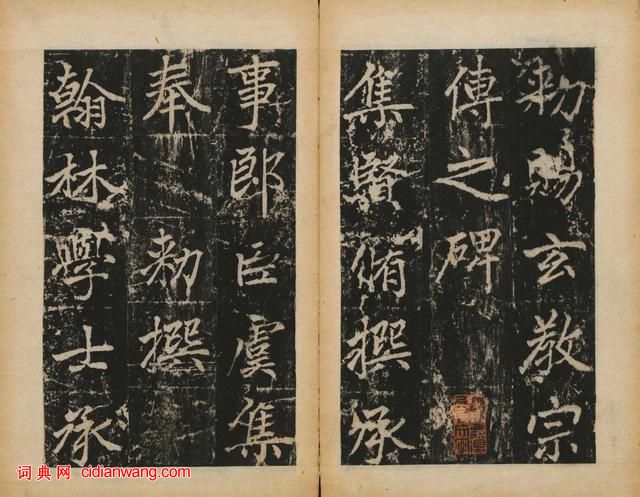 勑賜玄教宗
傳之碑
集賢脩撰承
事郎臣虞集
奉 勑撰
翰林學士承
词典网 cidianwang.com